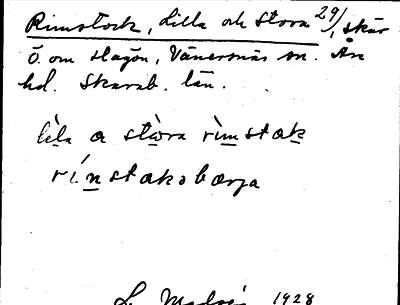 Rimstock, Lilla och Stora 29/1, skär
Ö. om Hagön, Vänersnäs sn. Åse
hd. Skarab. län.
lìla o stòra rìmstak
rínstaksbærja
1928